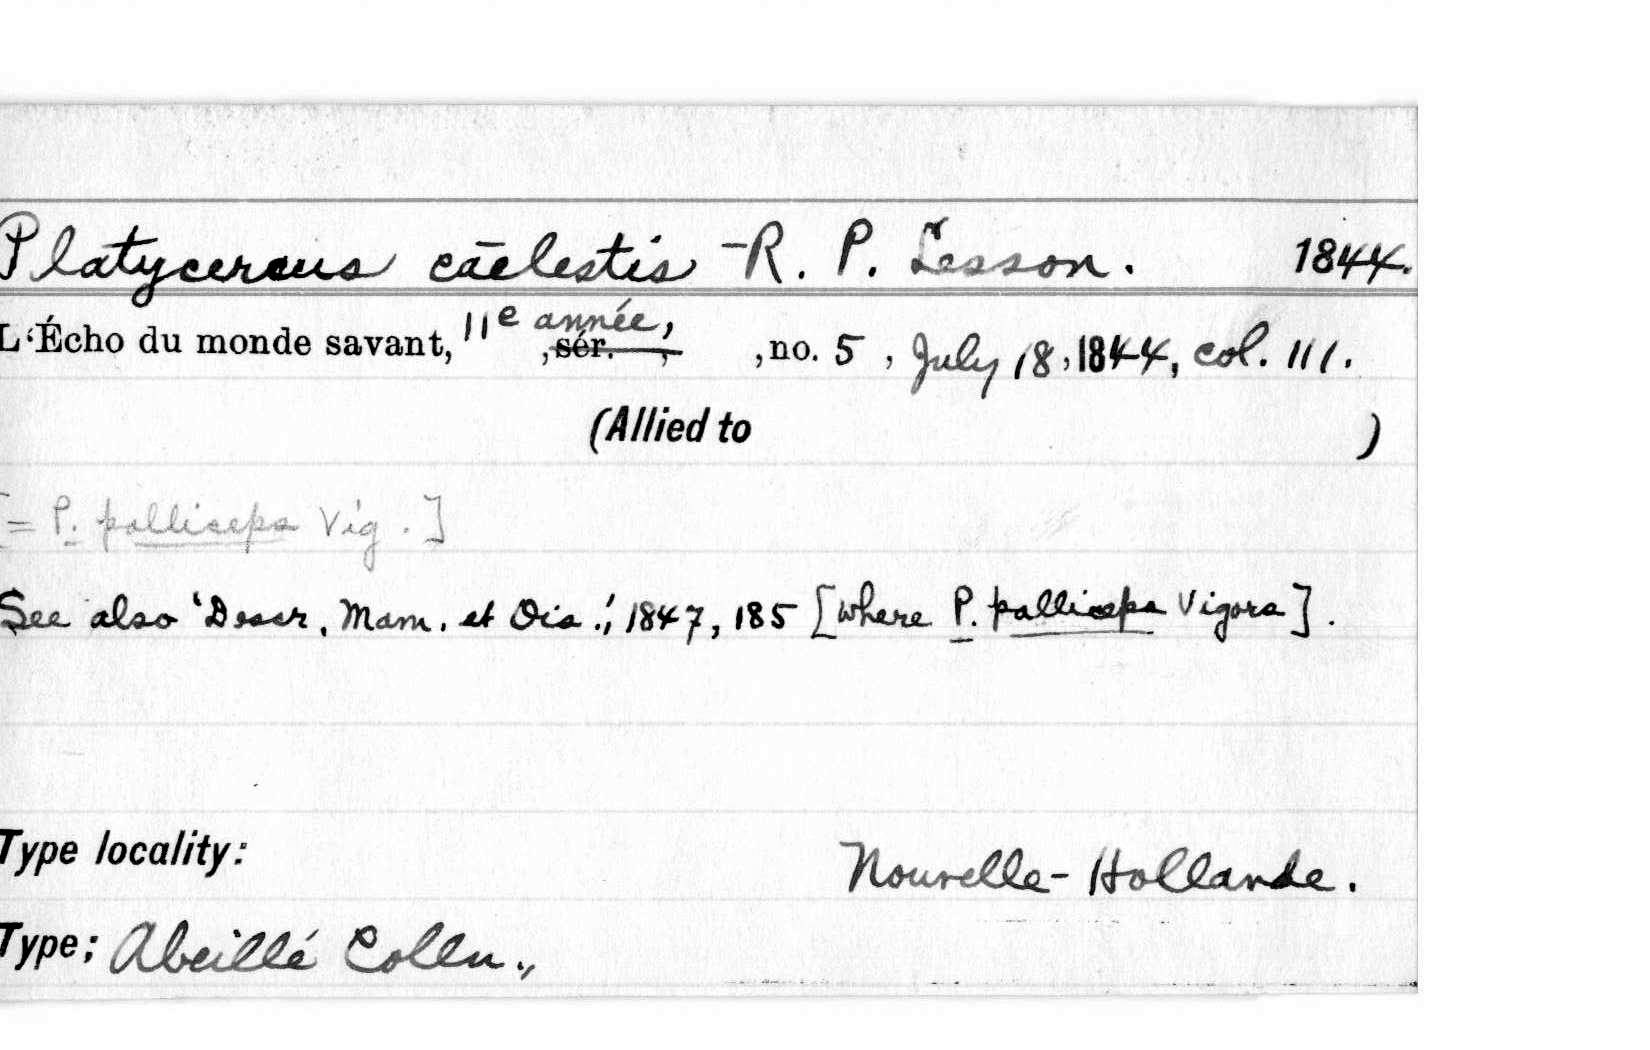 Platycercus cāelestis - R. P. Lesson. 1844.
L'Écho du monde savant, 11e année, ,sér. , ,no. 5 , July 18, 1844, col. 111.
(Allied to )
[= P. palliceps Vig.]
See also 'Descr. Mam. et Ois.', 1847, 185 [where P. palliceps Vigors].
Type locality: Nouvelle-Hollande.
Type; Abeillé Colln.,